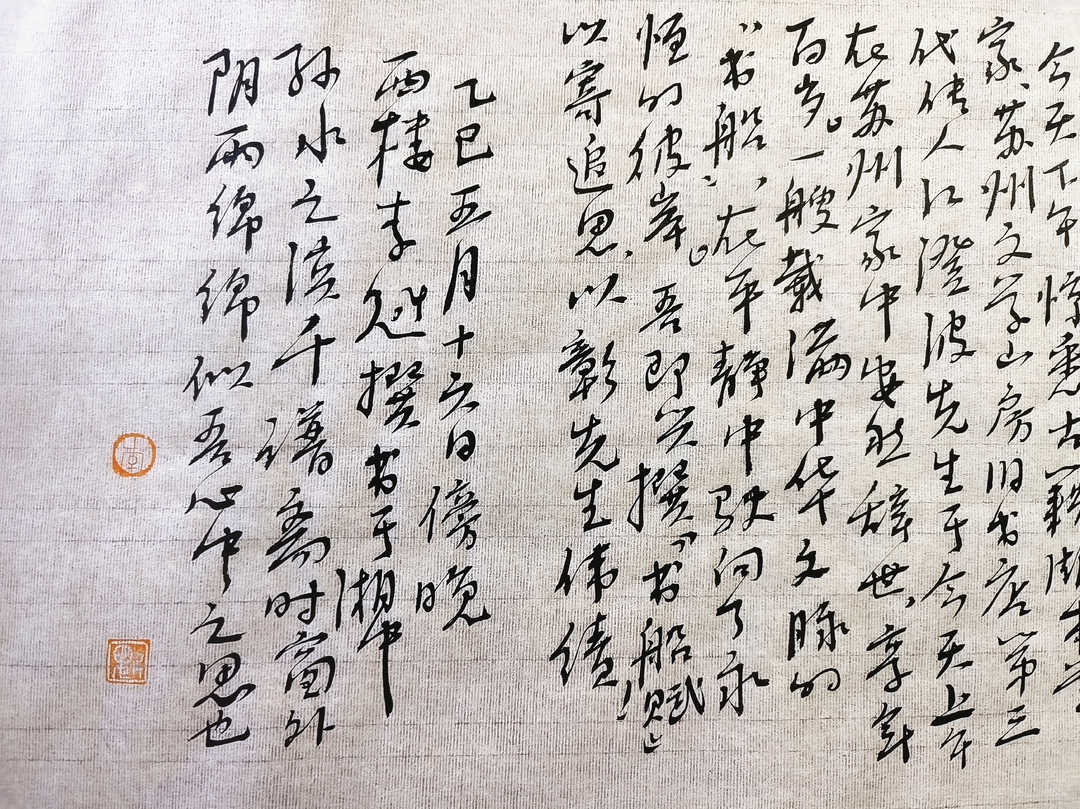 今天下午惊悉古籍版本学
家、苏州文学山房旧书店第三
代传人江澄波先生于今天上午
在苏州家中安然辞世，享年
百岁。一艘载满中华文脉的
“书船”，在平静中驶向了永
恒的彼岸。吾即兴撰“书船赋”
以寄追思，以彰先生伟绩！
乙巳五月十六日傍晚
西楼李 撰书于湘中
孙水之滨千 斋时窗外
阴雨绵绵似吾心中之思也